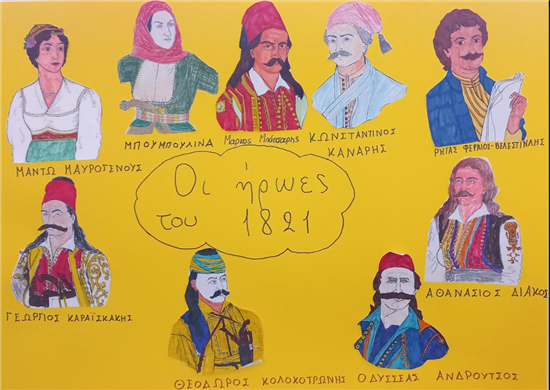 ΜΑΝΤΩ ΜΑΥΡΟΓΕΝΟΥΣ
ΜΠΟΥΜΠΟΥΛΙΝΑ
Μάρκος Μπότσαρης
ΚΩΝΣΤΑΝΤΙΝΟΣ
ΚΑΝΑΡΗΣ
ΡΗΓΑΣ ΦΕΡΑΙΟΣ-ΒΕΛΕΣΤΙΝΛΗΣ
Οι ήρωες
του 1821
ΓΕΩΡΓΙΟΣ ΚΑΡΑΪΣΚΑΚΗΣ
ΑΘΑΝΑΣΙΟΣ ΔΙΑΚΟΣ
ΘΕΟΔΩΡΟΣ ΚΟΛΟΚΟΤΡΩΝΗΣ
ΟΔΥΣΣΕΑΣ ΑΝΔΡΟΥΤΣΟΣ